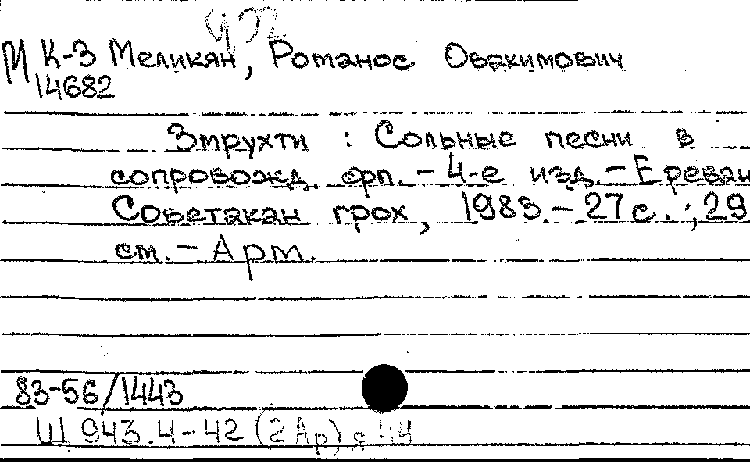 М К-3 Меликян, Романос Овакимович
14682
Змрухти : Сольные песни в
сопровожд. фп. - 4-е изд. - Ереван
Советакан грох, 1983. - 27 с. ; 29
см. - Арм.
83-56/1443
Щ 943.4-42 (2Ар) я 44